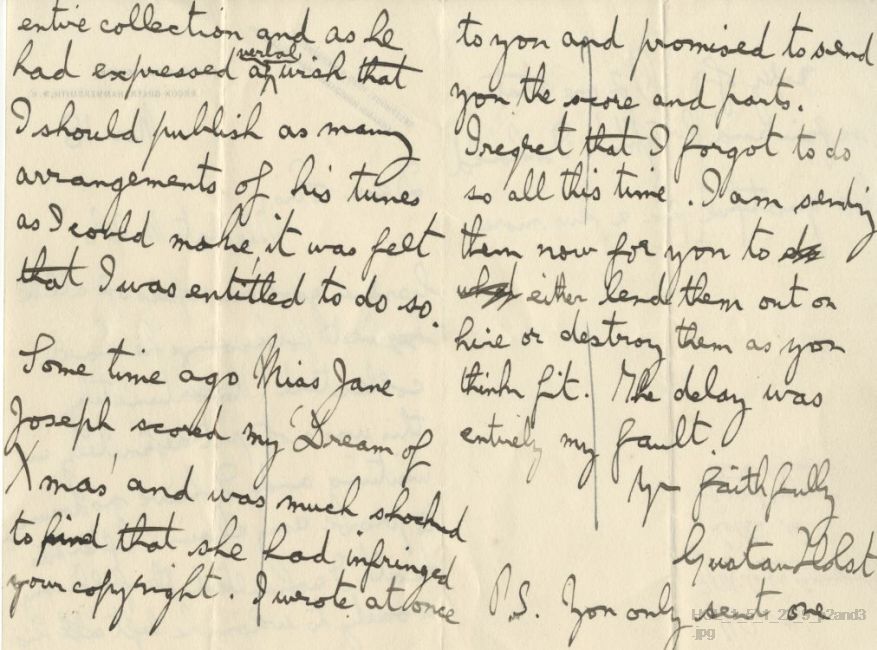 entire collection and as he
had expressed a verbal wish that
I should publish as many
arrangements of his tunes
as I could make, it was felt
that I was entitled to do so.
Some time ago Miss Jane
Joseph scored my 'Dream of
Xmas' and was much shocked
to find that she had infringed
your copyright. I wrote at once
to you and promised to send
you the score and parts.
I regret that I forgot to do
so all this time. I am sending
them now for you to
either lend them out on
hire or destroy them as you
think fit. The delay was
entirely my fault.
Yrs faithfully
Gustav Holst
P.S. You only sent one